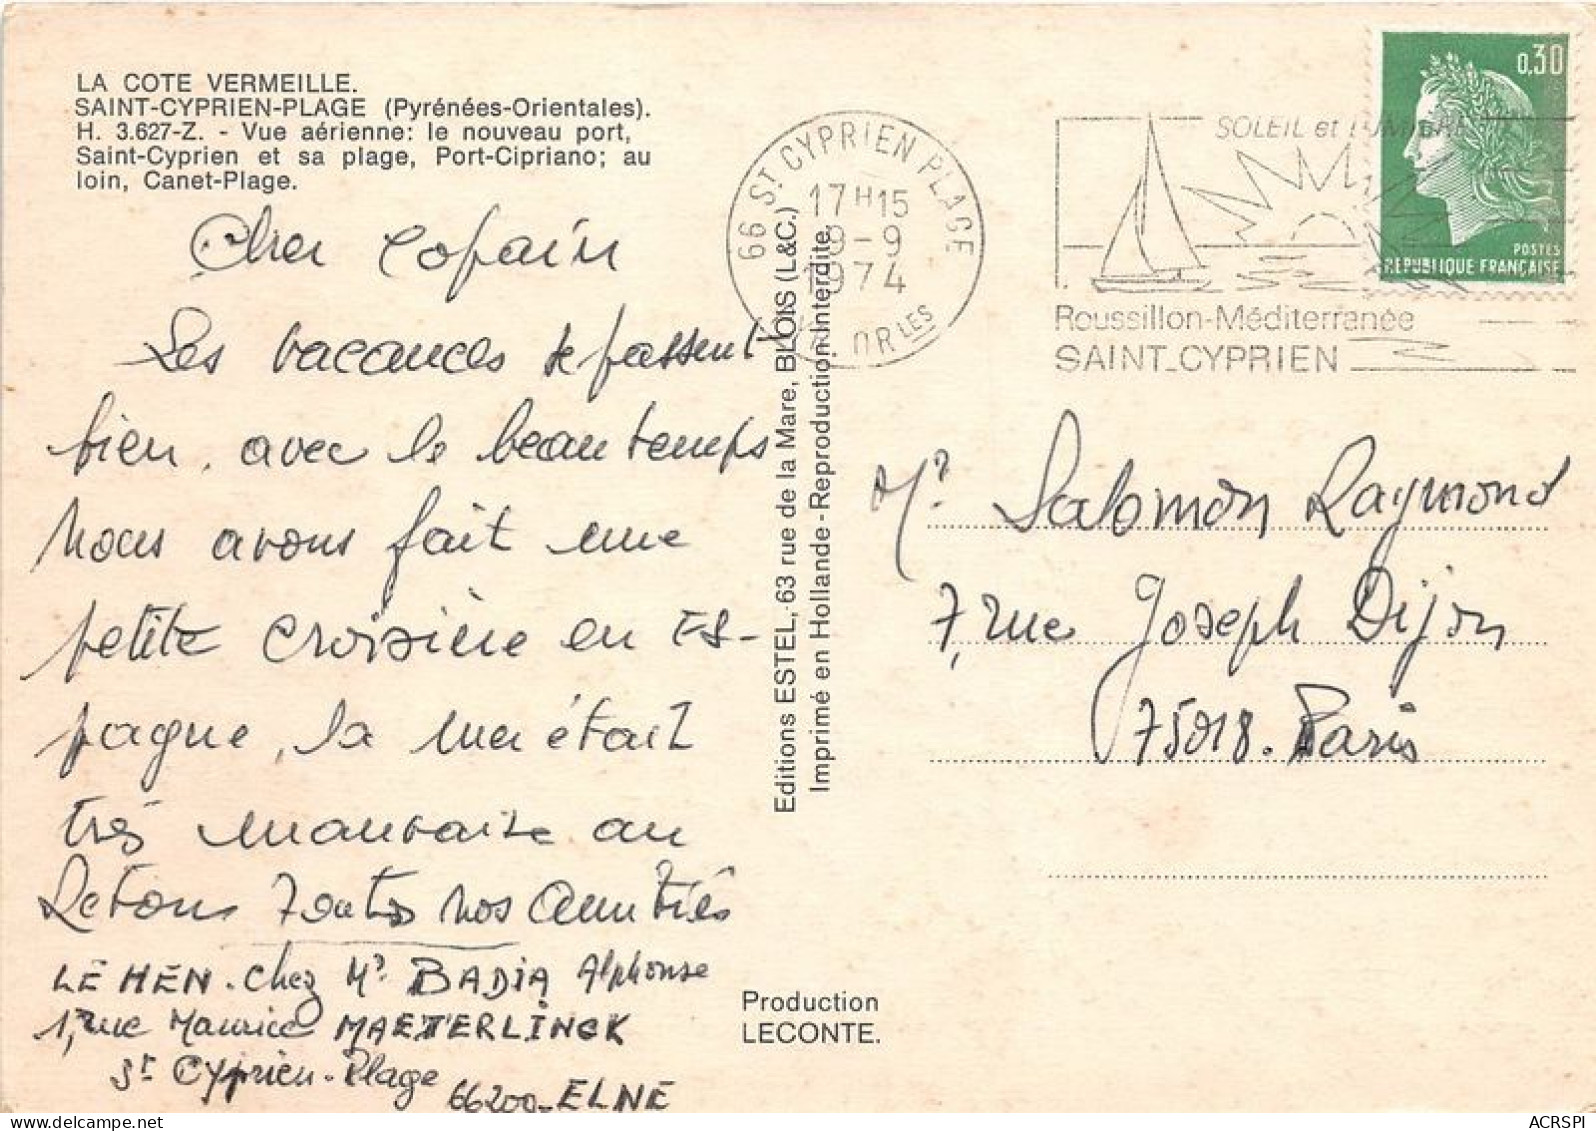 LA COTE VERMEILLE.
SAINT-CYPRIEN-PLAGE (Pyrénées-Orientales).
H. 3.627-Z. - Vue aérienne: le nouveau port,
Saint-Cyprien et sa plage, Port-Cipriano; au
loin, Canet-Plage.
Cher Copain
Les vacances se passent
bien, avec le beau temps
nous avons fait une
petite croisière en ES-
pagne, la mer était
très mauvaise au
Retour Toutes nos amitiés
LE HEN. chez Mr BADIA Alphonse
1, rue Maurice MAETERLINCK
St Cyprien-Plage
66200-ELNE
66 ST CYPRIEN PLAGE
17H15
8-9
1974
OR LES
SOLEIL et LUMIERE
Roussillon-Méditerranée
SAINT_CYPRIEN
0,30
POSTES
REPUBLIQUE FRANÇAISE
Editions ESTEL, 63 rue de la Mare, BLOIS (L&C.)
Imprimé en Hollande - Reproduction Interdite
Mr Salomon Raymond
7, rue Joseph Dijon
75018. Paris
Production
LECONTE.
ACRSPI